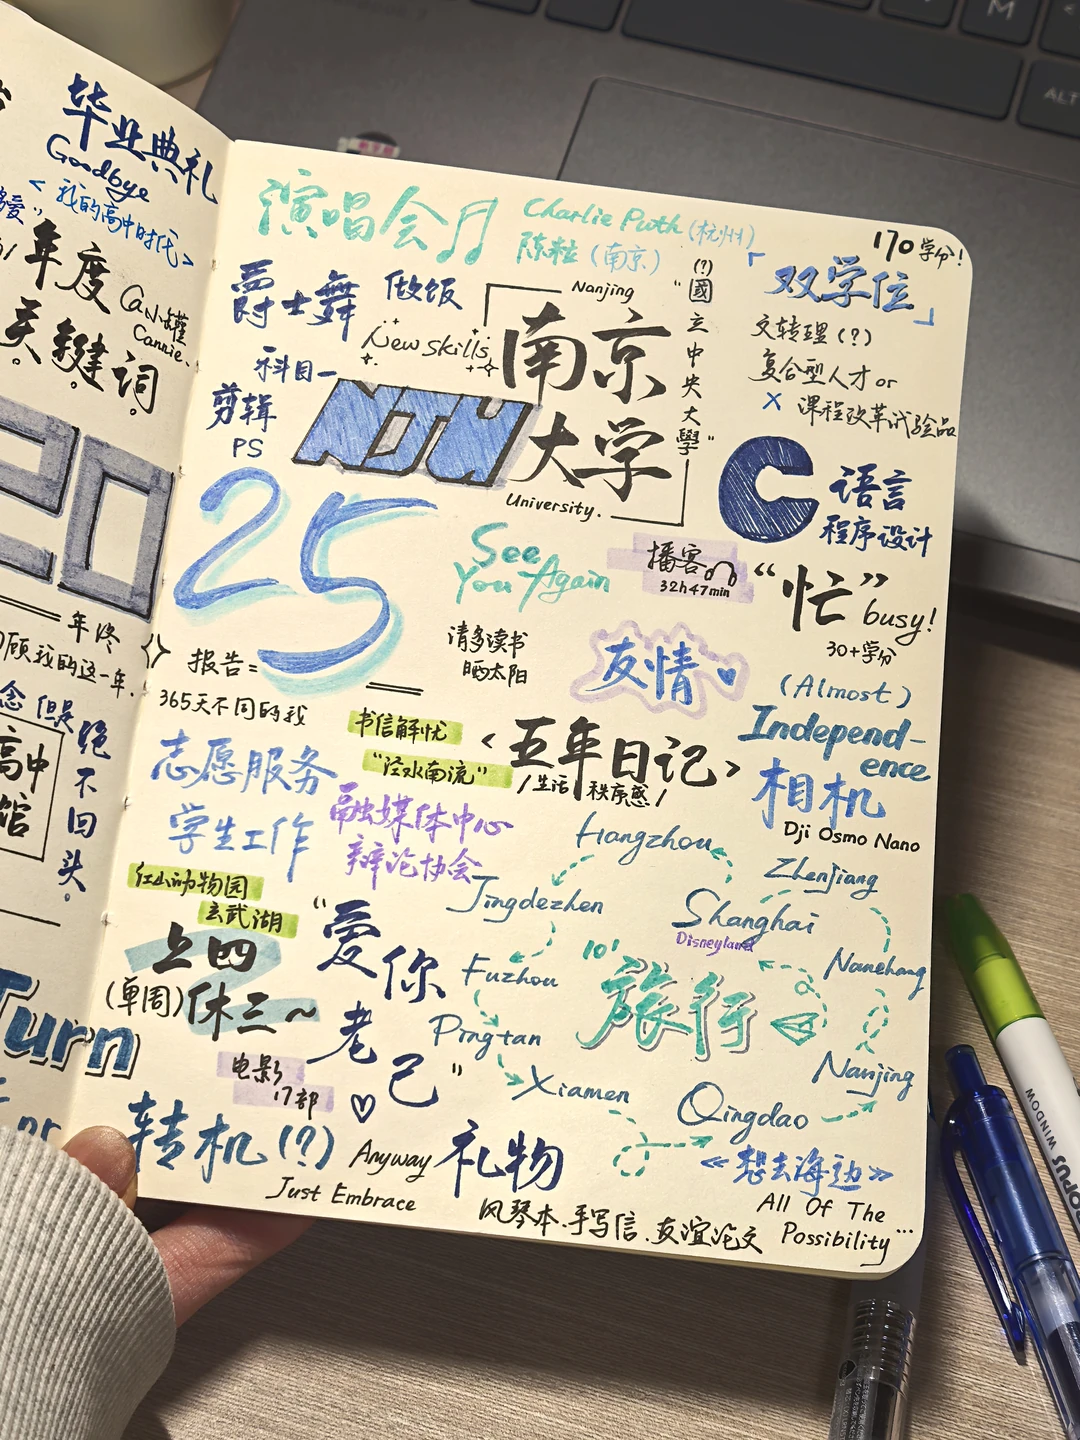 毕业典礼
Goodbye
<我的高中时代>
年度
关键词
Cannie.
年终
顾我的这一年.
念 但是
绝不回头.
高中
馆
Turn
演唱会
Charlie Puth (杭州)
陈粒 (南京)
170学分!
爵士舞
做饭
New skills
科目一
剪辑
PS
Nanjing
南京
大学
University.
NJU
"(?)國立中央大學"
「双学位」
文转理(?)
复合型人才or
X 课程改革试验品
C语言
程序设计
25
报告=
365天不同的我
See
You Again
请多读书
晒太阳
播客
32h47min
"忙"
busy!
30+学分
友情
(Almost)
Independ-
ence
相机
Dji Osmo Nano
志愿服务
学生工作
书信解忧
"泾水南流"
<五年日记>
/生活 秩序感/
融媒体中心
辩论协会
红山动物园
玄武湖
上四
(单周)休三~
"爱你
老己"
电影
17部
转机(?)
Anyway
Just Embrace
礼物
风琴本、手写信、友谊论文
Hangzhou
Jingdezhen
Fuzhou
Pingtan
Xiamen
Zhenjiang
Shanghai
Disneyland
Nanchang
10'
旅行
Nanjing
Qingdao
《想去海边》
All Of The
Possibility...
M
ALT
WINDOW